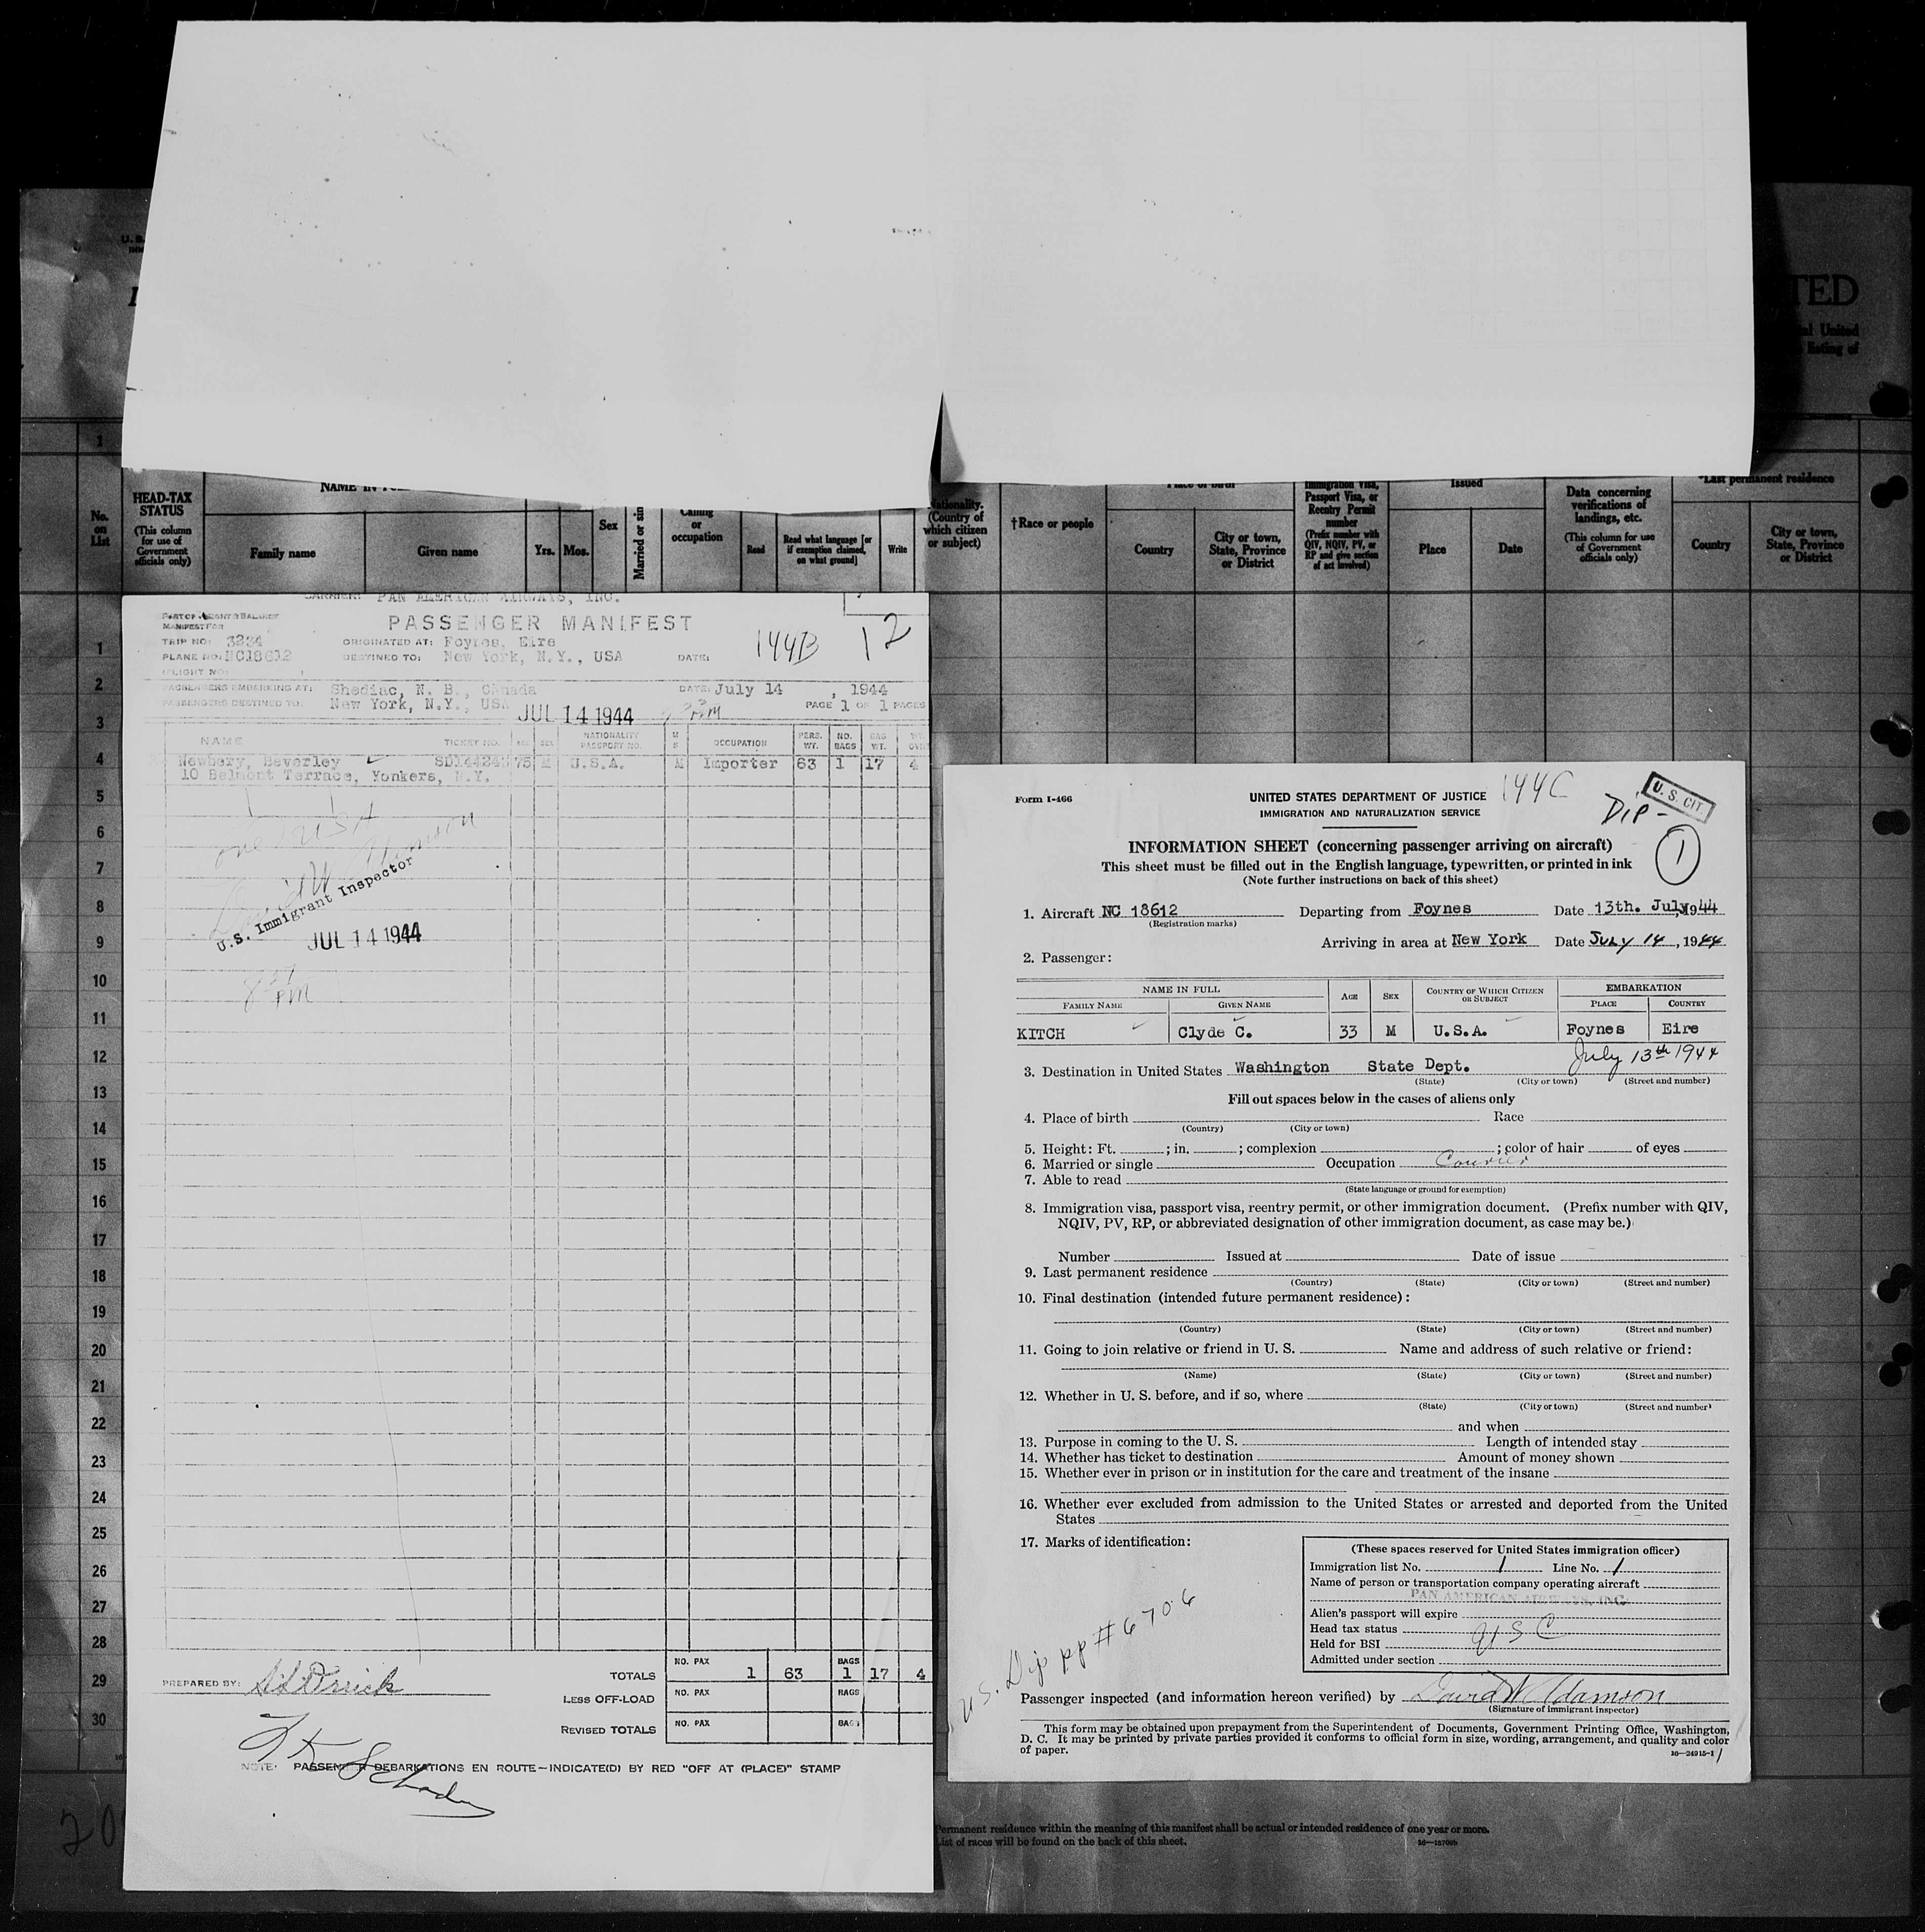 TED
al United
listing of
1
No. on List
HEAD-TAX STATUS
(This column for use of Government officials only)
Family name
Given name
Yrs.
Mos.
Sex
Married or sin
Calling or occupation
Read
Read what language [or if exemption claimed, on what ground]
Write
Nationality. (Country of which citizen or subject)
†Race or people
Country
City or town, State, Province or District
Immigration Visa, Passport Visa, or Reentry Permit number
(Prefix number with QIV, NQIV, PV, or RP and give section of act involved)
Issued
Place
Date
Data concerning verifications of landings, etc.
(This column for use of Government officials only)
*Last permanent residence
Country
City or town, State, Province or District
1
2
3
4
5
6
7
8
9
10
11
12
13
14
15
16
17
18
19
20
21
22
23
24
25
26
27
28
29
30
CARRIER: PAN AMERICAN AIRWAYS, INC.
PART OF WEIGHT & BALANCE
MANIFEST FOR
PASSENGER MANIFEST
TRIP NO: 3234
ORIGINATED AT: Foynes, Eire
144B
12
PLANE NO: NC18612
DESTINED TO: New York, N.Y., USA
DATE:
FLIGHT NO:
PASSENGERS EMBARKING AT: Shediac, N. B., Canada
DATE: July 14, 1944
PASSENGERS DESTINED TO: New York, N.Y., USA
JUL 14 1944
PM
PAGE 1 OF 1 PAGES
NAME
TICKET NO.
AGE
SEX
NATIONALITY PASSPORT NO.
M S
OCCUPATION
PERS. WT.
NO. BAGS
BAG WT.
Newbery, Beverley
75 M U.S.A. M Importer 63 1 17 4
10 Belmont Terrace, Yonkers, N.Y.
one USA
David W Adamson
U.S. Immigrant Inspector
JUL 14 1944
PM
PREPARED BY:
TOTALS
NO. PAX
1
63
BAGS
1
17
4
LESS OFF-LOAD
NO. PAX
BAGS
REVISED TOTALS
NO. PAX
BAGS
NOTE: PASSENGER DEBARKATIONS EN ROUTE—INDICATE(D) BY RED "OFF AT (PLACE)" STAMP
Form I-466
UNITED STATES DEPARTMENT OF JUSTICE
144C
IMMIGRATION AND NATURALIZATION SERVICE
DIP-
U. S. CIT.
1
INFORMATION SHEET (concerning passenger arriving on aircraft)
This sheet must be filled out in the English language, typewritten, or printed in ink
(Note further instructions on back of this sheet)
1. Aircraft NC 18612 Departing from Foynes Date 13th. July, 1944
(Registration marks)
Arriving in area at New York Date July 14, 1944
2. Passenger:
NAME IN FULL
FAMILY NAME
GIVEN NAME
AGE
SEX
COUNTRY OF WHICH CITIZEN OR SUBJECT
EMBARKATION
PLACE
COUNTRY
KITCH Clyde C. 33 M U.S.A. Foynes Eire
July 13th 1944
3. Destination in United States Washington State Dept.
(State) (City or town) (Street and number)
Fill out spaces below in the cases of aliens only
4. Place of birth Race
(Country) (City or town)
5. Height: Ft. ; in. ; complexion ; color of hair of eyes
6. Married or single Occupation Courier
7. Able to read
(State language or ground for exemption)
8. Immigration visa, passport visa, reentry permit, or other immigration document. (Prefix number with QIV,
NQIV, PV, RP, or abbreviated designation of other immigration document, as case may be.)
Number Issued at Date of issue
9. Last permanent residence
(Country) (State) (City or town) (Street and number)
10. Final destination (intended future permanent residence):
(Country) (State) (City or town) (Street and number)
11. Going to join relative or friend in U. S. Name and address of such relative or friend:
(Name) (State) (City or town) (Street and number)
12. Whether in U. S. before, and if so, where
(State) (City or town) (Street and number)
and when
13. Purpose in coming to the U. S. Length of intended stay
14. Whether has ticket to destination Amount of money shown
15. Whether ever in prison or in institution for the care and treatment of the insane
16. Whether ever excluded from admission to the United States or arrested and deported from the United
States
17. Marks of identification:
U.S. Dip pp # 6706
(These spaces reserved for United States immigration officer)
Immigration list No. 1 Line No. 1
Name of person or transportation company operating aircraft
PAN AMERICAN AIRWAYS, INC.
Alien's passport will expire
Head tax status USC
Held for BSI
Admitted under section
Passenger inspected (and information hereon verified) by David W Adamson
(Signature of immigrant inspector)
This form may be obtained upon prepayment from the Superintendent of Documents, Government Printing Office, Washington,
D. C. It may be printed by private parties provided it conforms to official form in size, wording, arrangement, and quality and color
of paper.
16—24915-1
Permanent residence within the meaning of this manifest shall be actual or intended residence of one year or more.
List of races will be found on the back of this sheet.